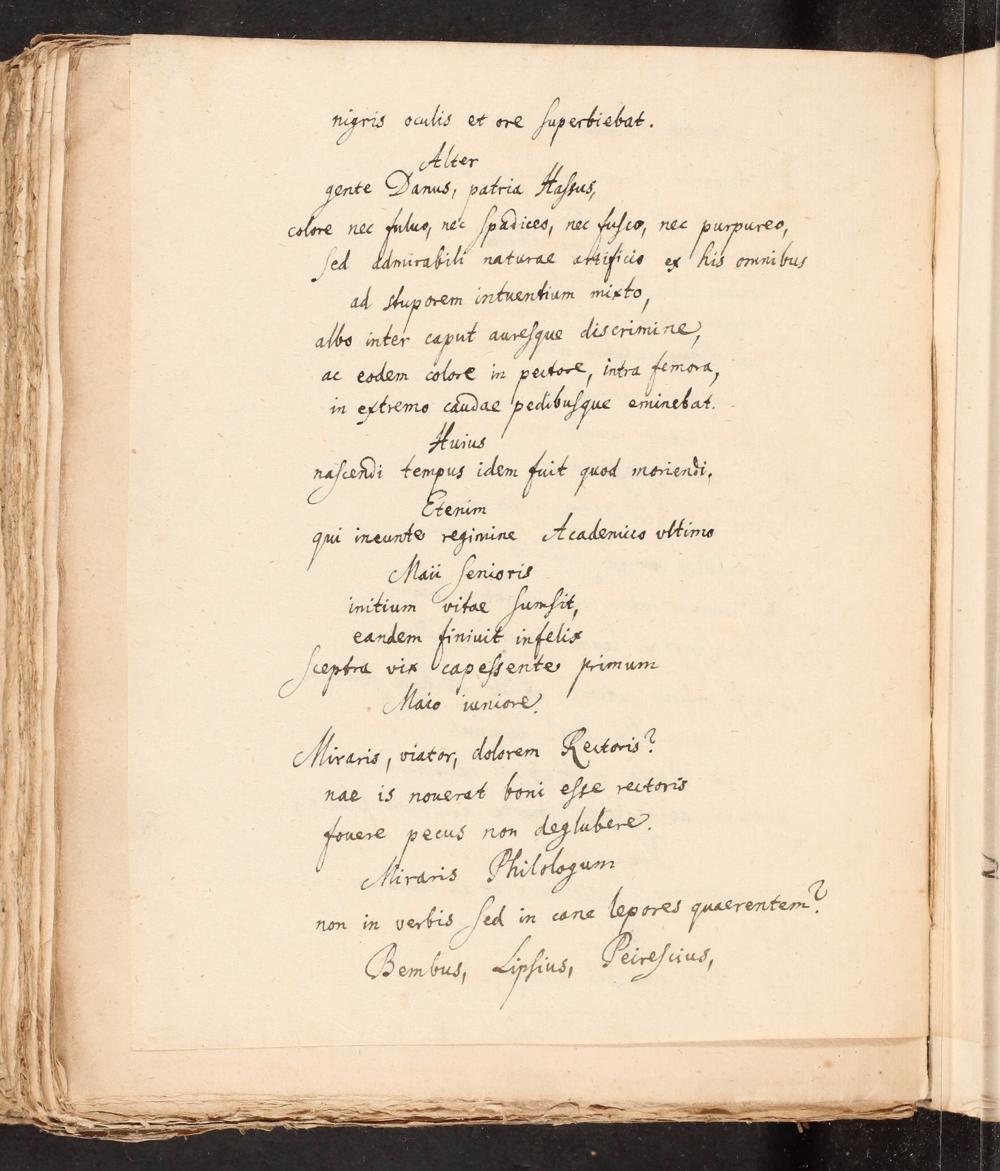 nigris oculis et ore superbiebat.
Alter
gente Danus, patria Hassus,
colore nec fuluo, nec spadiceo, nec fusco, nec purpureo,
sed admirabili naturae artificio ex his omnibus
ad stuporem intuentium mixto,
albo inter caput auresque discrimine,
ac eodem colore in pectore, intra femora,
in extremo caudae pedibusque eminebat.
Huius
nascendi tempus idem fuit quod moriendi.
Etenim
qui ineunte regimine Academico vltimo
Maii Senioris
initium vitae sumsit,
eandem finiuit infelix
sceptra vix capessente primum
Maio iuniore.
Miraris, viator, dolorem Rectoris?
nae is nouerat boni esse rectoris
fouere pecus non deglubere.
Miraris Philologum
non in verbis sed in cane lepores quaerentem?
Bembus, Lipsius, Peirescius,